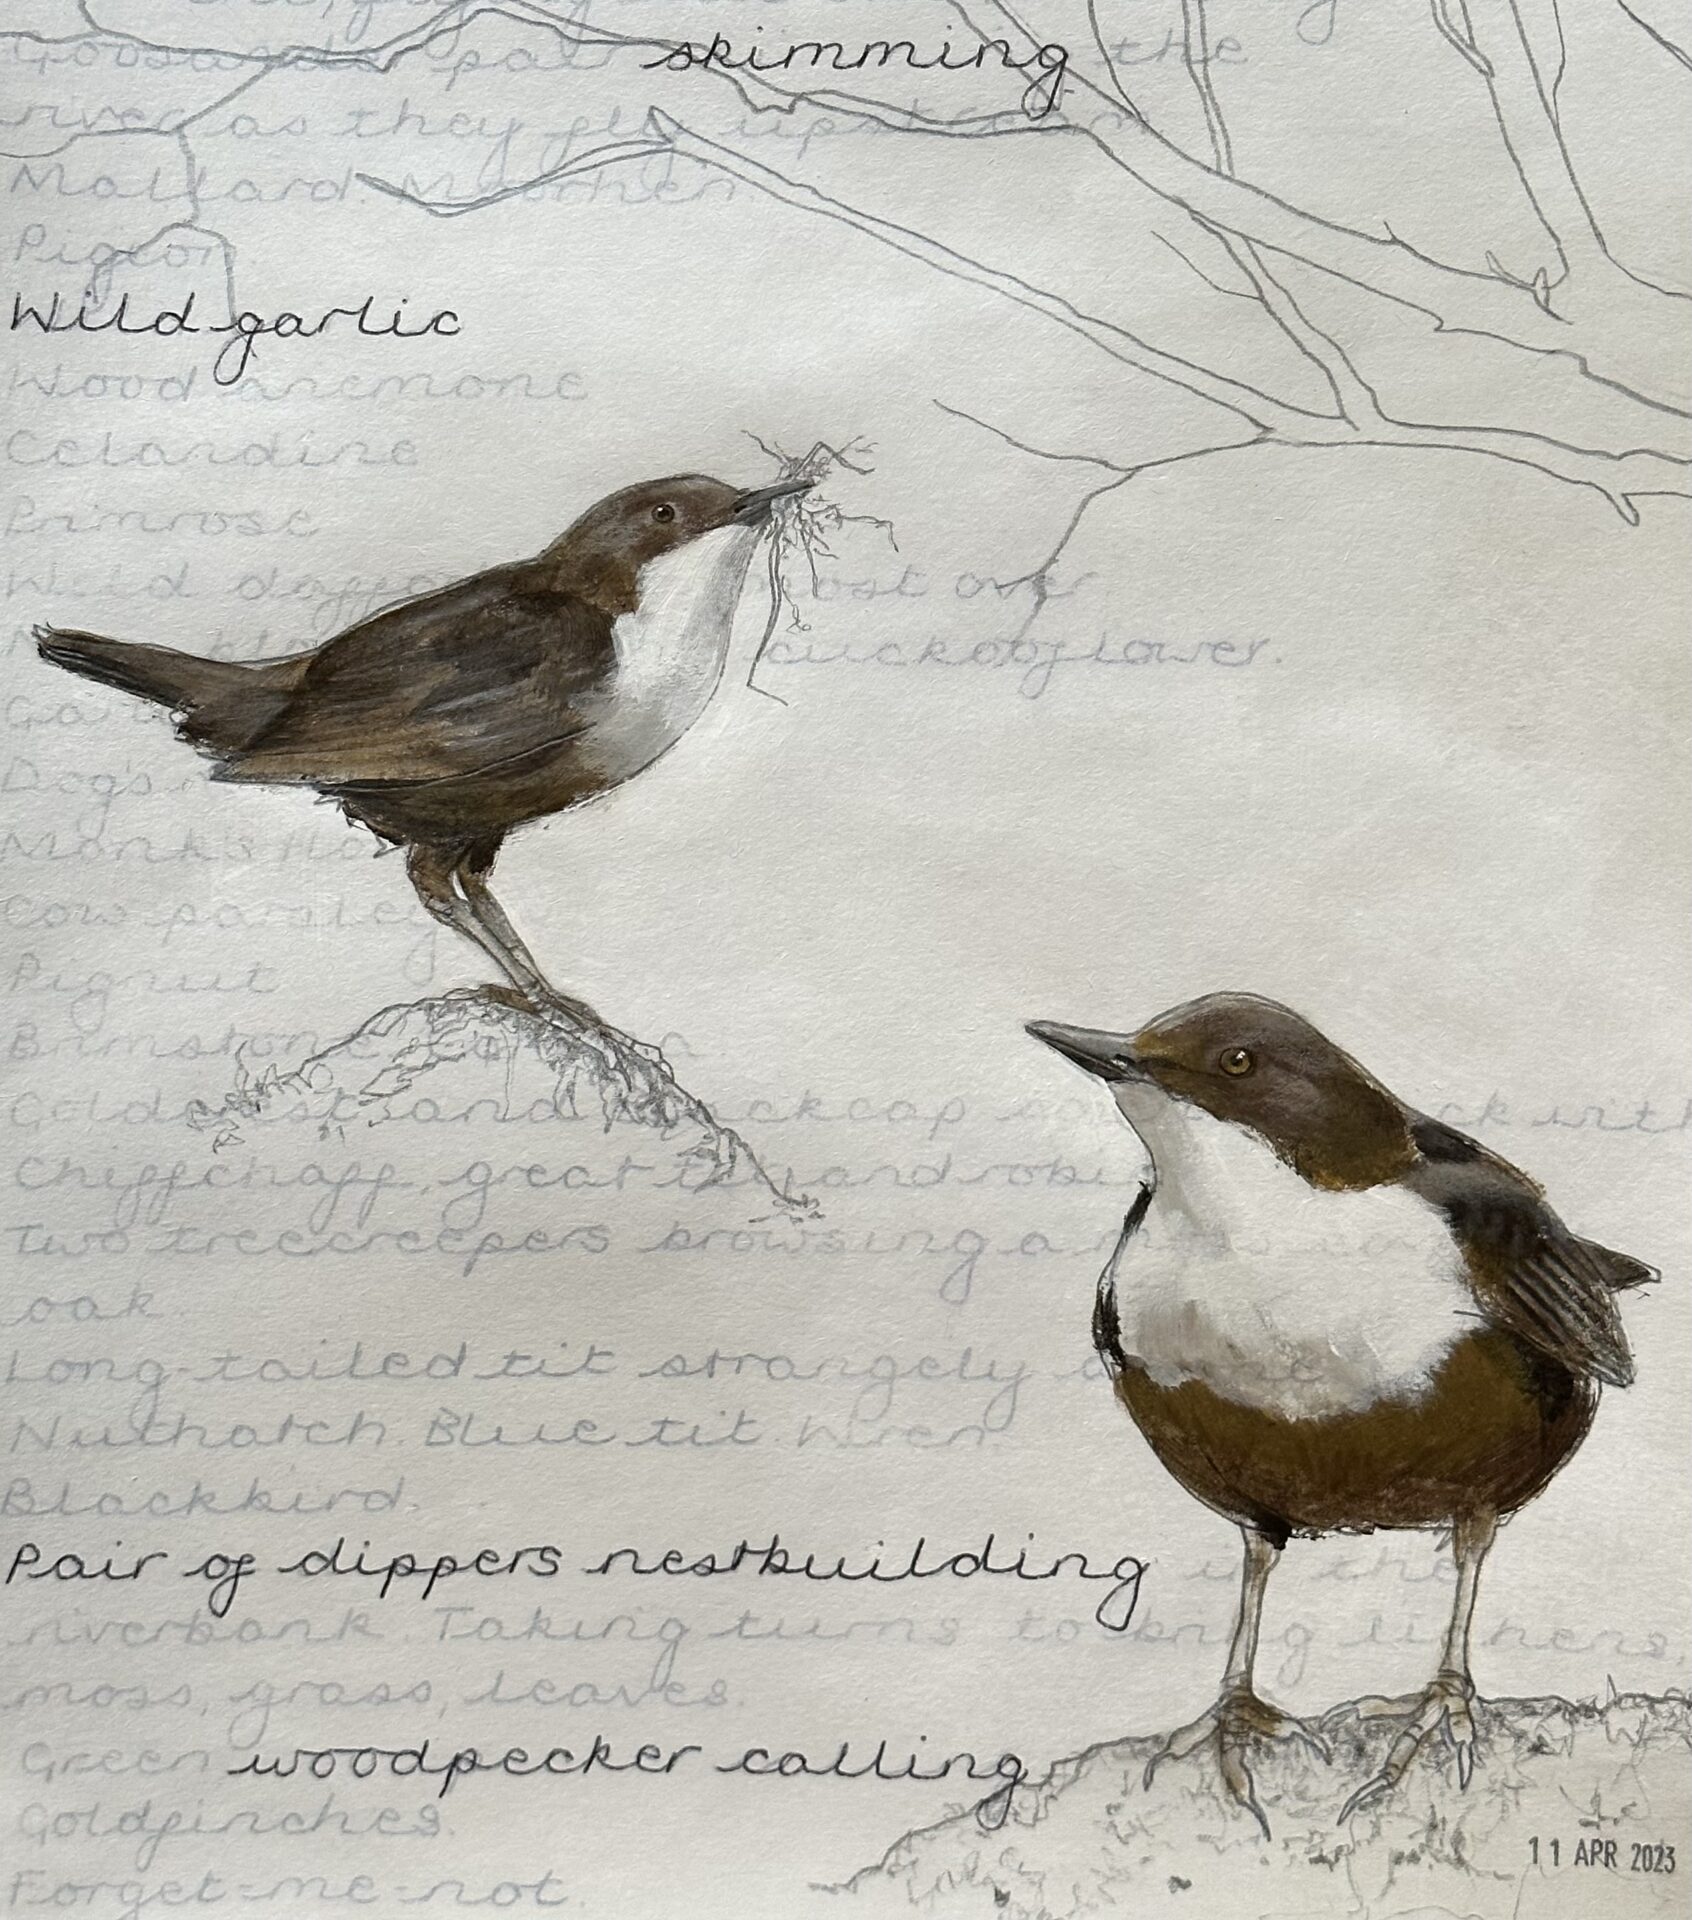 Goosander pair skimming the
river as they fly upstream
Mallard. Moorhen.
Pigeon.
Wild garlic
Wood anemone
Celandine
Primrose
Wild most over
cuckooflower.
Dog's
Monk's
Cow parsley
Pignut
Brimstone
Goldcrest and blackcap with
Chiffchaff, great tit and robin
Two treecreepers browsing a
oak.
Long-tailed tit strangely alone
Nuthatch. Blue tit. Wren.
Blackbird.
Pair of dippers nestbuilding in the
riverbank. Taking turns to bring lichens,
moss, grass, leaves.
Green woodpecker calling
Goldfinches.
Forget-me-not.
11 APR 2023